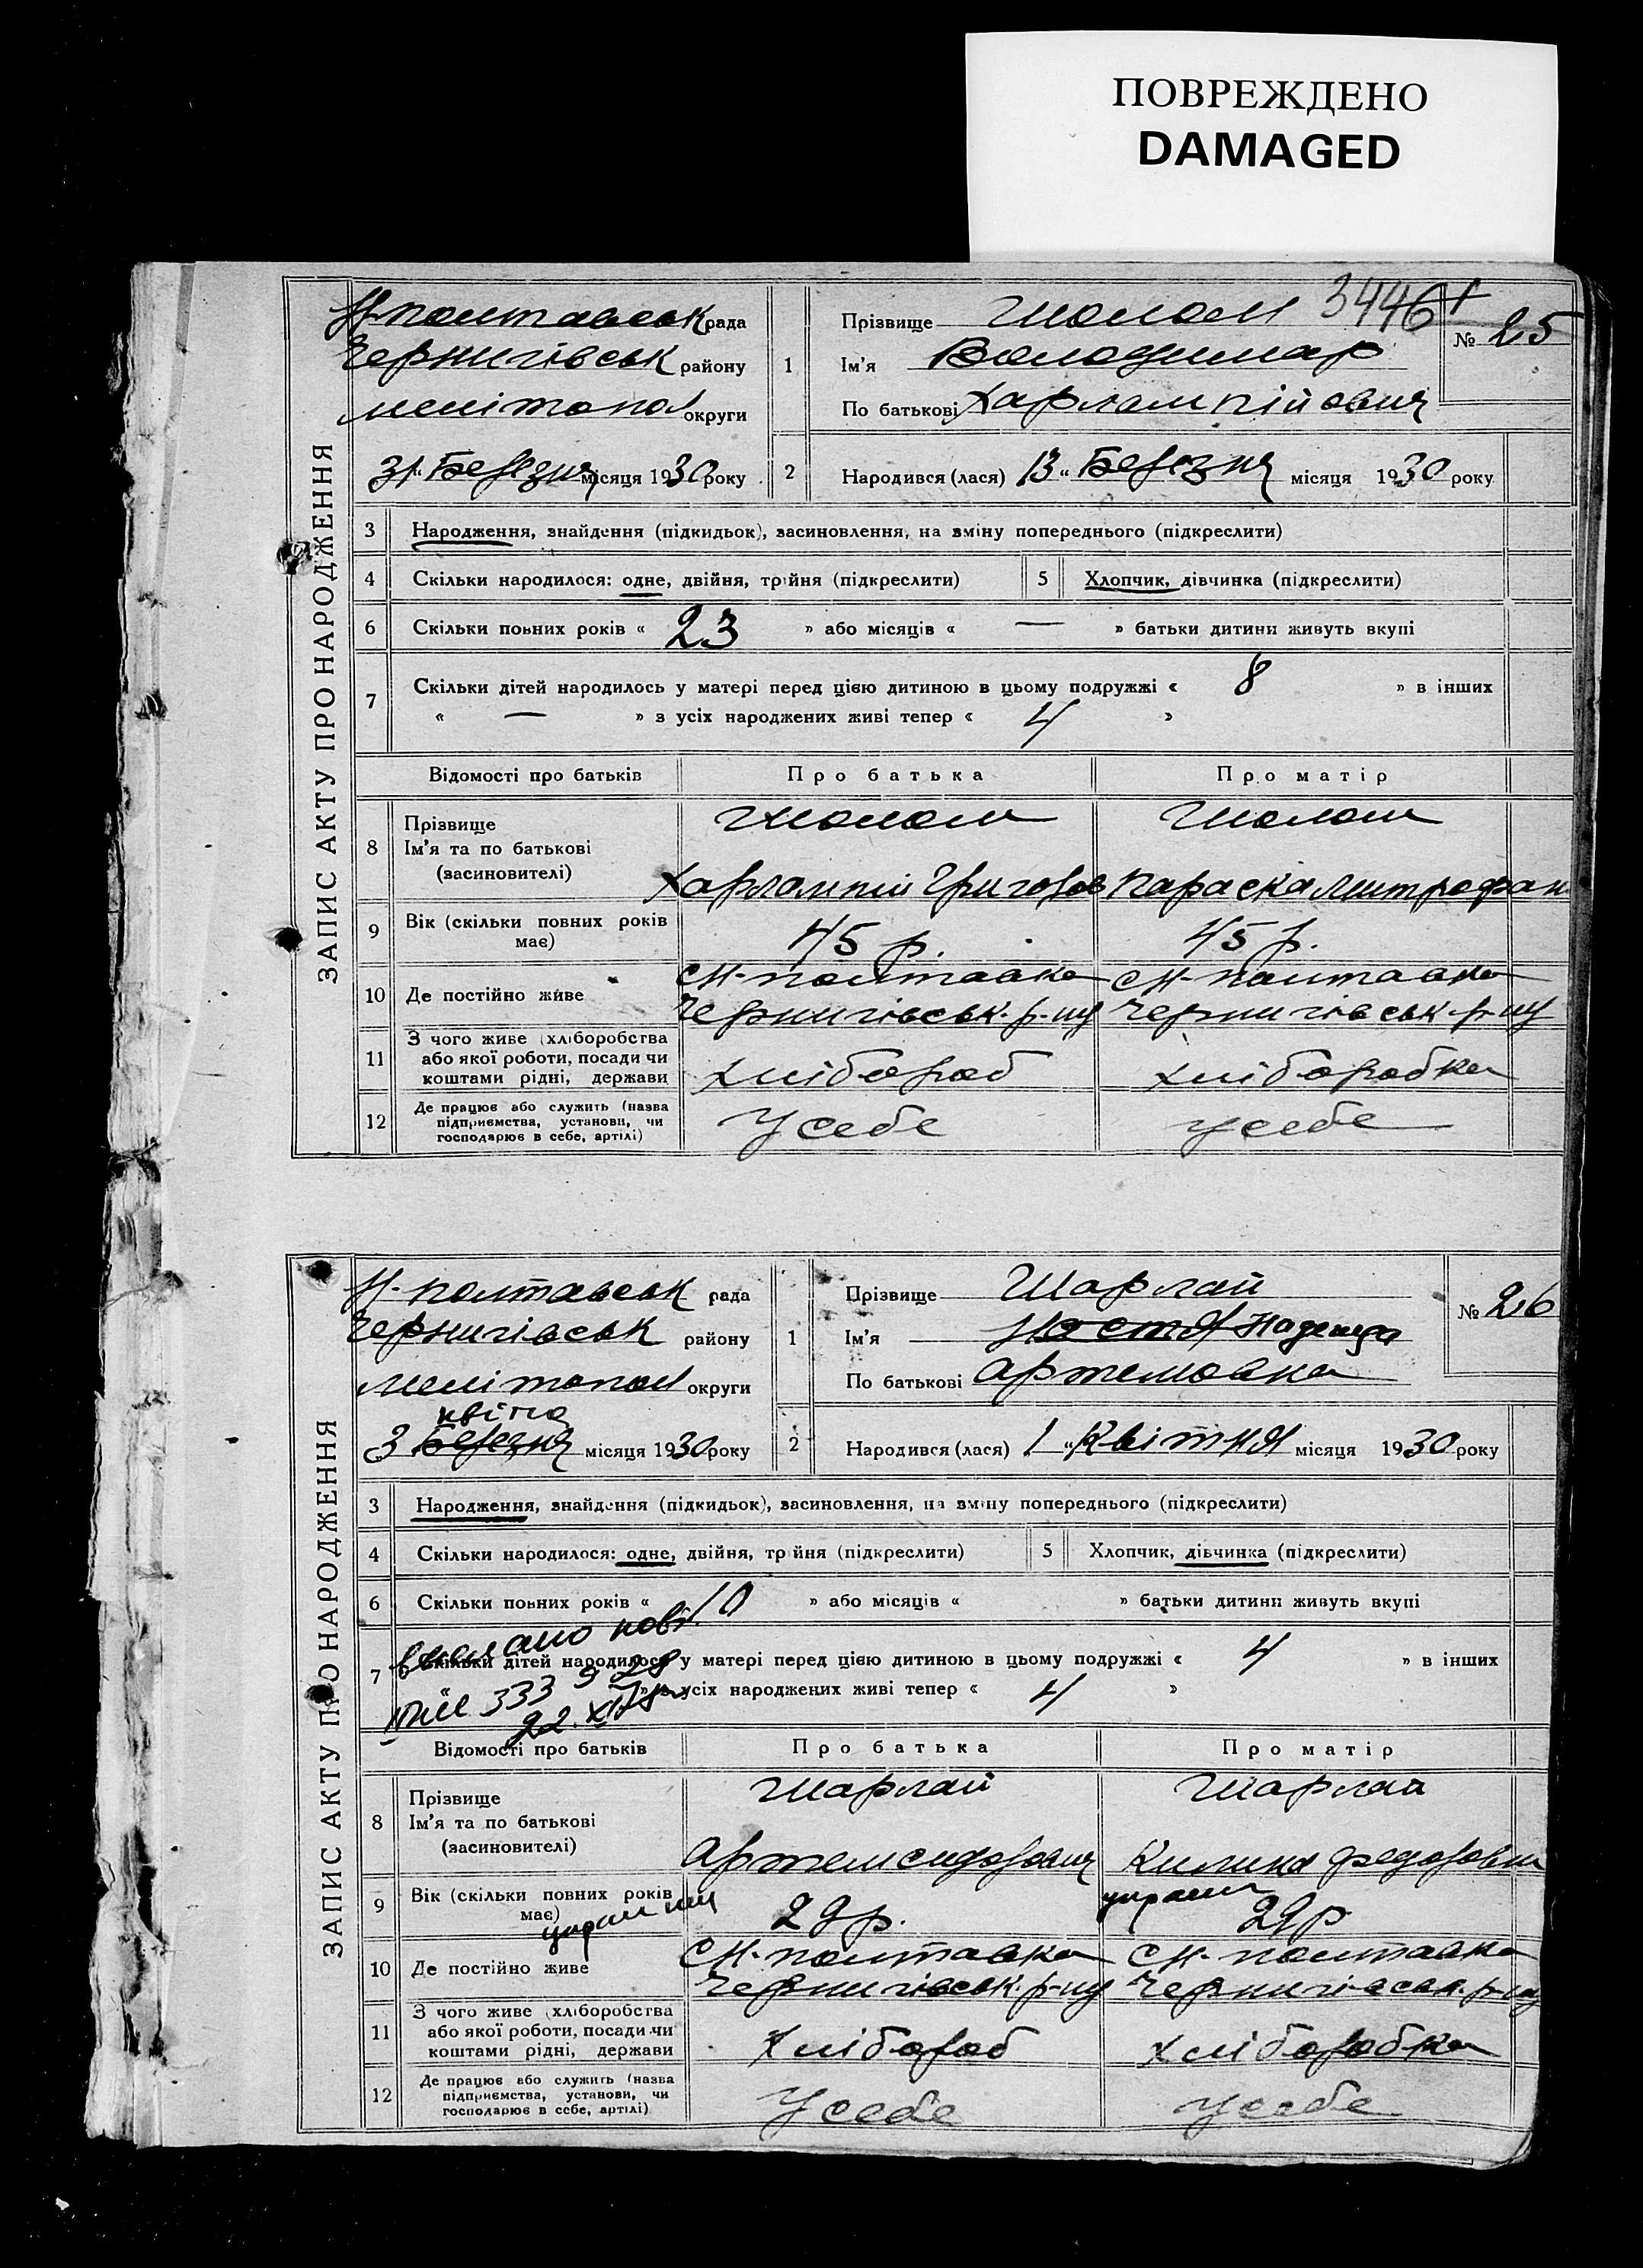 ПОВРЕЖДЕНО
DAMAGED
ЗАПИС АКТУ ПРО НАРОДЖЕННЯ
Н-полтавськ рада
Чернигівськ району
мелітопол округи
31 „ Березня місяця 1930 року
3446
№ 25
1 Прізвище Шолом
Ім'я Володимир
По батькові Харлампійович
2 Народився (лася) 13 „ Березня місяця 1930 року
3 Народження, знайдення (підкидьок), засиновлення, на зміну попереднього (підкреслити)
4 Скільки народилося: одне, двійня, трійня (підкреслити) 5 Хлопчик, дівчинка (підкреслити)
6 Скільки повних років « 23 » або місяців « — » батьки дитини живуть вкупі
7 Скільки дітей народилось у матері перед цією дитиною в цьому подружжі « 8 » в інших
« — » з усіх народжених живі тепер « 4 »
Відомості про батьків Про батька Про матір
8 Прізвище Шолом Шолом
Ім'я та по батькові
(засиновителі) Харлампий Григоров Параска Митрофан
9 Вік (скільки повних років має) 45 р. 45 р.
10 Де постійно живе с Н-полтавка с Н-полтавка
Чернигівськ. р-ну Чернигівськ. р-ну
11 З чого живе (хліборобства
або якої роботи, посади чи
коштами рідні, держави хлібороб хліборобка
12 Де працює або служить (назва
підприємства, установи, чи
господарює в себе, артілі) У себе у себе
ЗАПИС АКТУ ПРО НАРОДЖЕННЯ
Н-полтавськ рада
Чернигівськ району
мелітопол округи
квітня
3 Березня місяця 1930 року
№ 26
1 Прізвище Шарлай
Ім'я Настя Надежда
По батькові Артемовна
2 Народився (лася) 1 „ Квітня місяця 1930 року
3 Народження, знайдення (підкидьок), засиновлення, на зміну попереднього (підкреслити)
4 Скільки народилося: одне, двійня, трійня (підкреслити) 5 Хлопчик, дівчинка (підкреслити)
6 Скільки повних років « 10 » або місяців « » батьки дитини живуть вкупі
7 Скільки дітей народилося у матері перед цією дитиною в цьому подружжі « 4 » в інших
« » з усіх народжених живі тепер « 4 »
333
22. XI
Відомості про батьків Про батька Про матір
8 Прізвище Шарлай Шарлай
Ім'я та по батькові
(засиновителі) Артем Сидорович Килина Федоровна
9 Вік (скільки повних років має) 29 р. 29 р
10 Де постійно живе с Н-полтавка с Н-полтавка
Чернигівськ. р-ну Чернигівськ. р-ну
11 З чого живе (хліборобства
або якої роботи, посади чи
коштами рідні, держави Хлібороб хліборобка
12 Де працює або служить (назва
підприємства, установи, чи
господарює в себе, артілі) У себе у себе